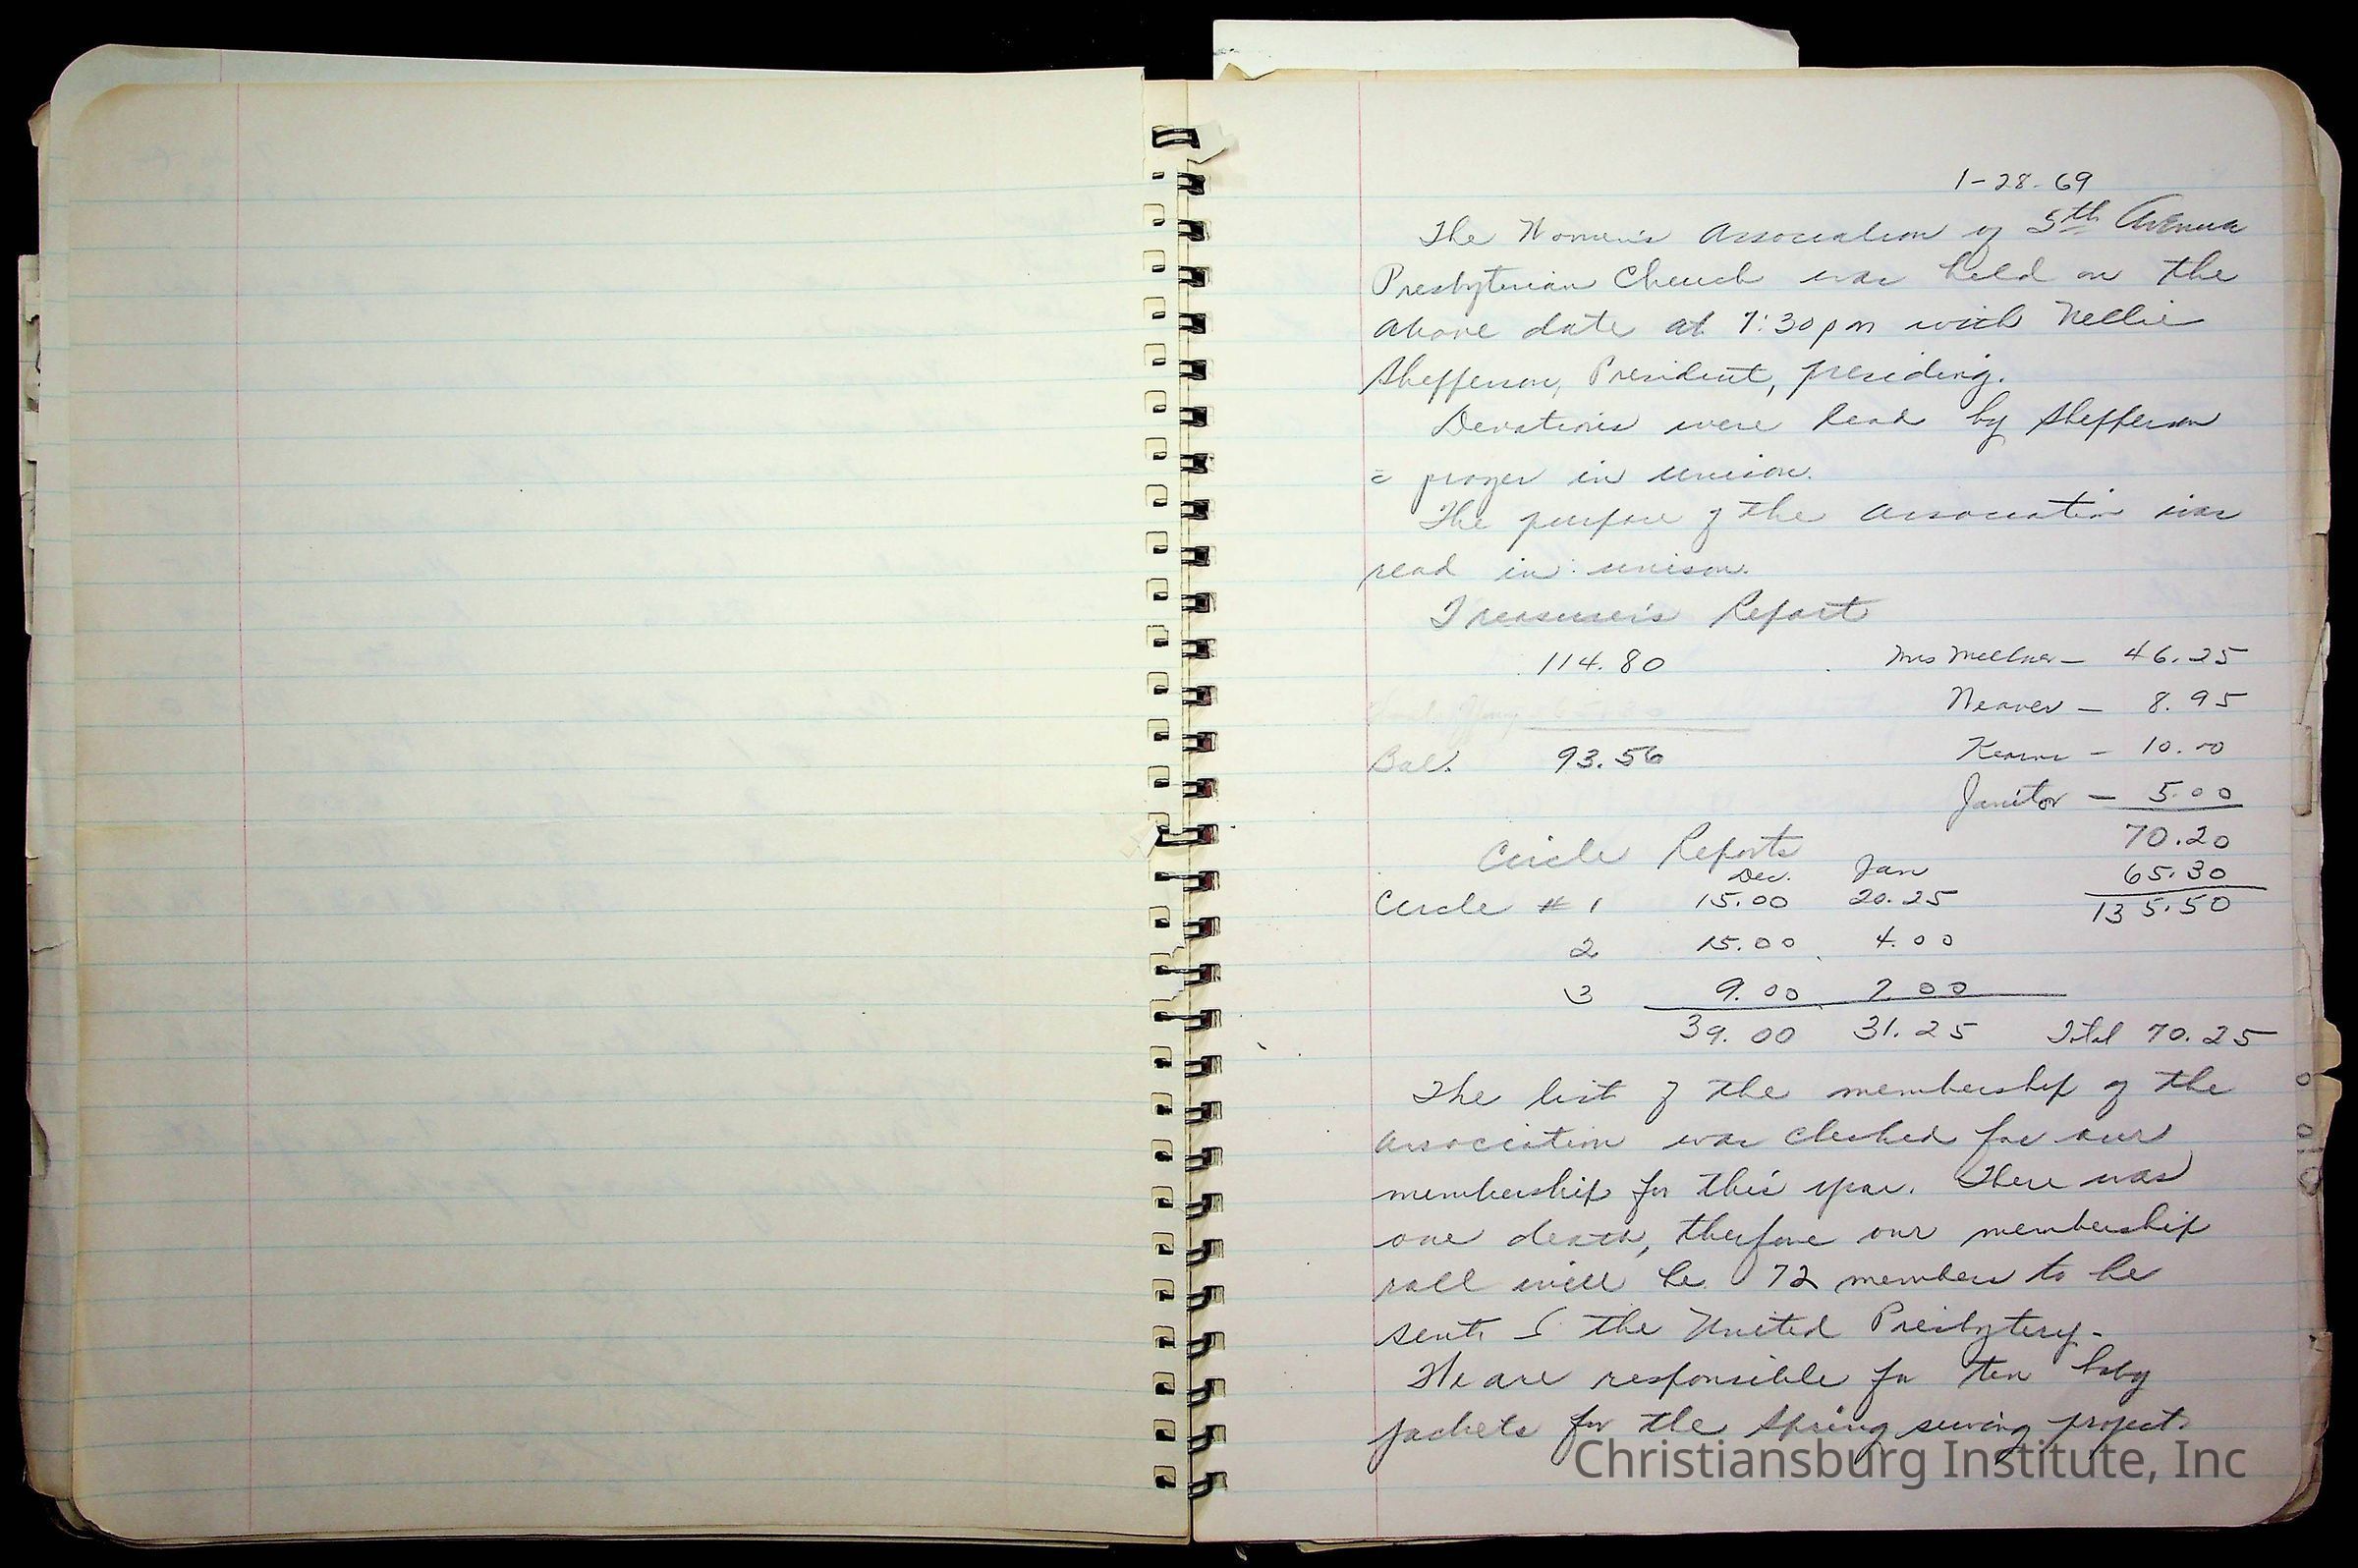 1-28-69
The Women's Association of 5th Avenue
Presbyterian Church was held on the
above date at 7:30 pm with Nellie
Shefferson, President, presiding.
Devotions were lead by Shefferson
c prayer in unison.
The purpose of the association was
read in unison.
Treasurer's Report
114.80 Mrs — 46.25
Weaver — 8.95
Bal. 93.56 — 10.00
Janitor — 5.00
70.20
Circle Reports
Dec. Jan 65.30
Circle # 1 15.00 20.25 135.50
2 15.00 4.00
3 9.00 7.00
39.00 31.25 Total 70.25
The list of the membership of the
association was checked for our
membership for this year. There was
one death, therfore our membership
roll will be 72 members to be
sent the United Presbytery.
We are responsible for ten baby
jackets for the Spring sewing project.
Christiansburg Institute, Inc